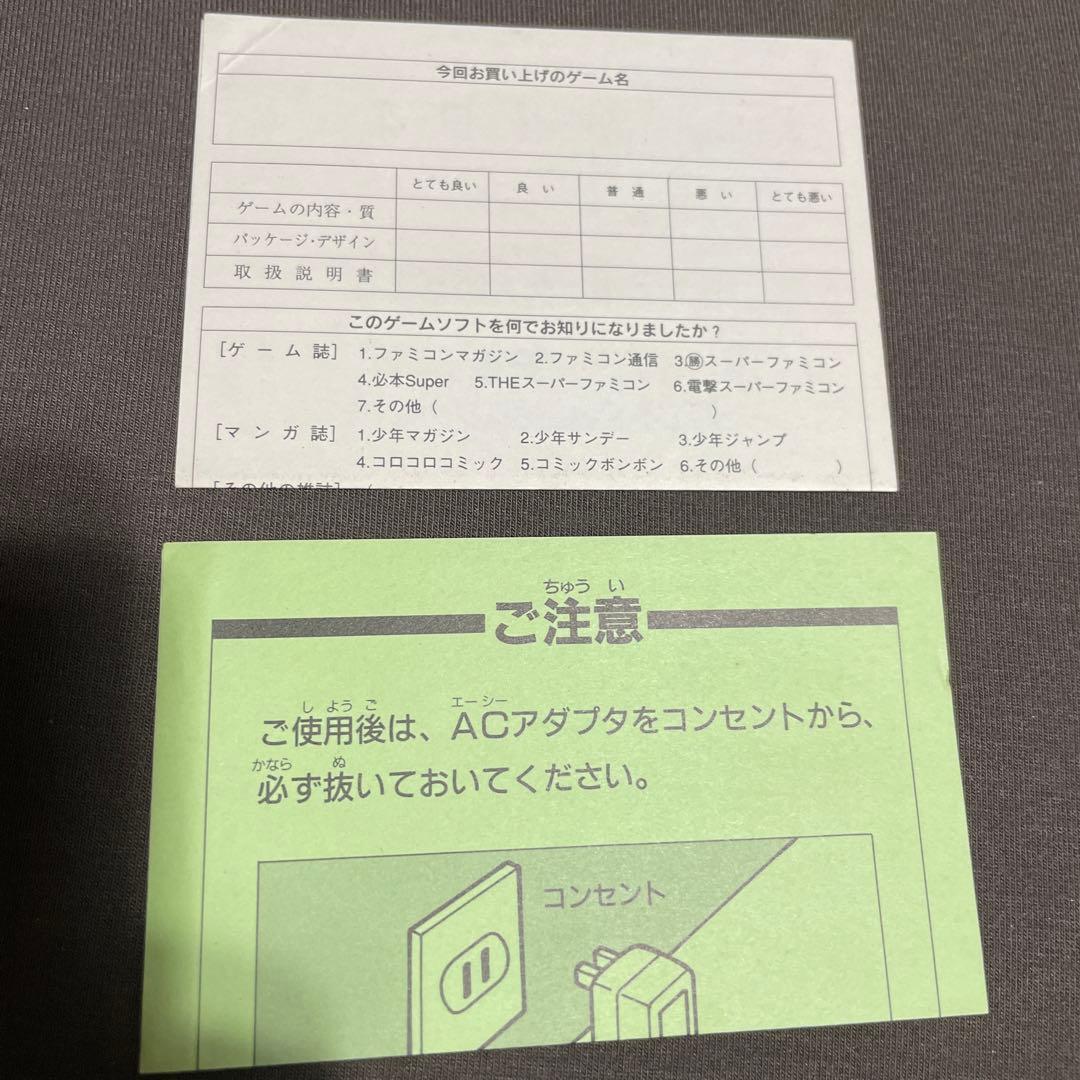 今回お買い上げのゲーム名
とても良い 良い 普通 悪い とても悪い
ゲームの内容・質
パッケージ・デザイン
取扱説明書
このゲームソフトを何でお知りになりましたか？
［ゲーム誌］ 1.ファミコンマガジン 2.ファミコン通信 3.㊝スーパーファミコン
4.必本Super 5.THEスーパーファミコン 6.電撃スーパーファミコン
7.その他（ ）
［マンガ誌］ 1.少年マガジン 2.少年サンデー 3.少年ジャンプ
4.コロコロコミック 5.コミックボンボン 6.その他（ ）
［その他の雑誌］（
ちゅうい
ご注意
しようご エーシー
ご使用後は、ACアダプタをコンセントから、
かなら ぬ
必ず抜いておいてください。
コンセント